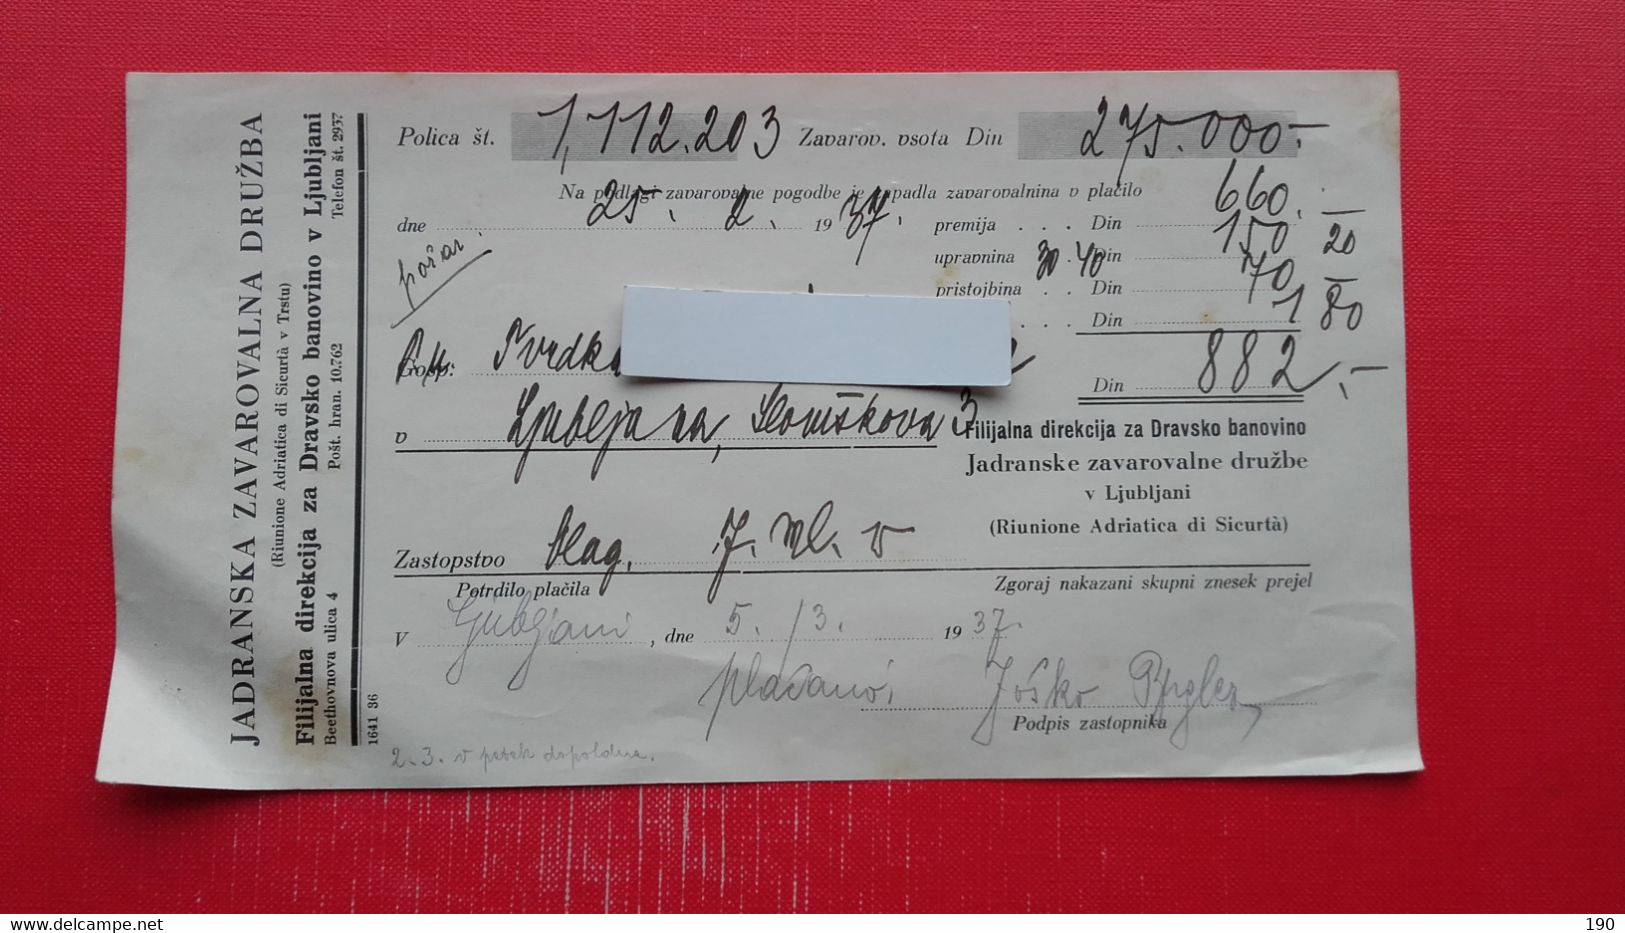 JADRANSKA ZAVAROVALNA DRUŽBA
(Riunione Adriatica di Sicurtà v Trstu)
Filijalna direkcija za Dravsko banovino v Ljubljani
Beethovnova ulica 4 Pošt. hran. 10.762 Telefon št. 2937
1641 36
Polica št. 1,112.203 Zavarov. vsota Din 275.000.-
Na podlagi zavarovalne pogodbe je zapadla zavarovalnina v plačilo
dne 25. 2. 1937. premija . . . Din 660.—
požar. upravnina 30.40 Din 150 20
pristojbina . . Din 70 —
. . . Din 1 80
Gosp. Tvrdka
Din 882.-
v Ljubljana, Slomškova 3
Filijalna direkcija za Dravsko banovino
Jadranske zavarovalne družbe
v Ljubljani
(Riunione Adriatica di Sicurtà)
Zastopstvo Mag. J. Ml. v
Potrdilo plačila Zgoraj nakazani skupni znesek prejel
V Ljubljani, dne 5./3. 1937.
plačano. Joško
Podpis zastopnika
2.-3. v petek dopoldne.
delcampe.net
Mladi
190